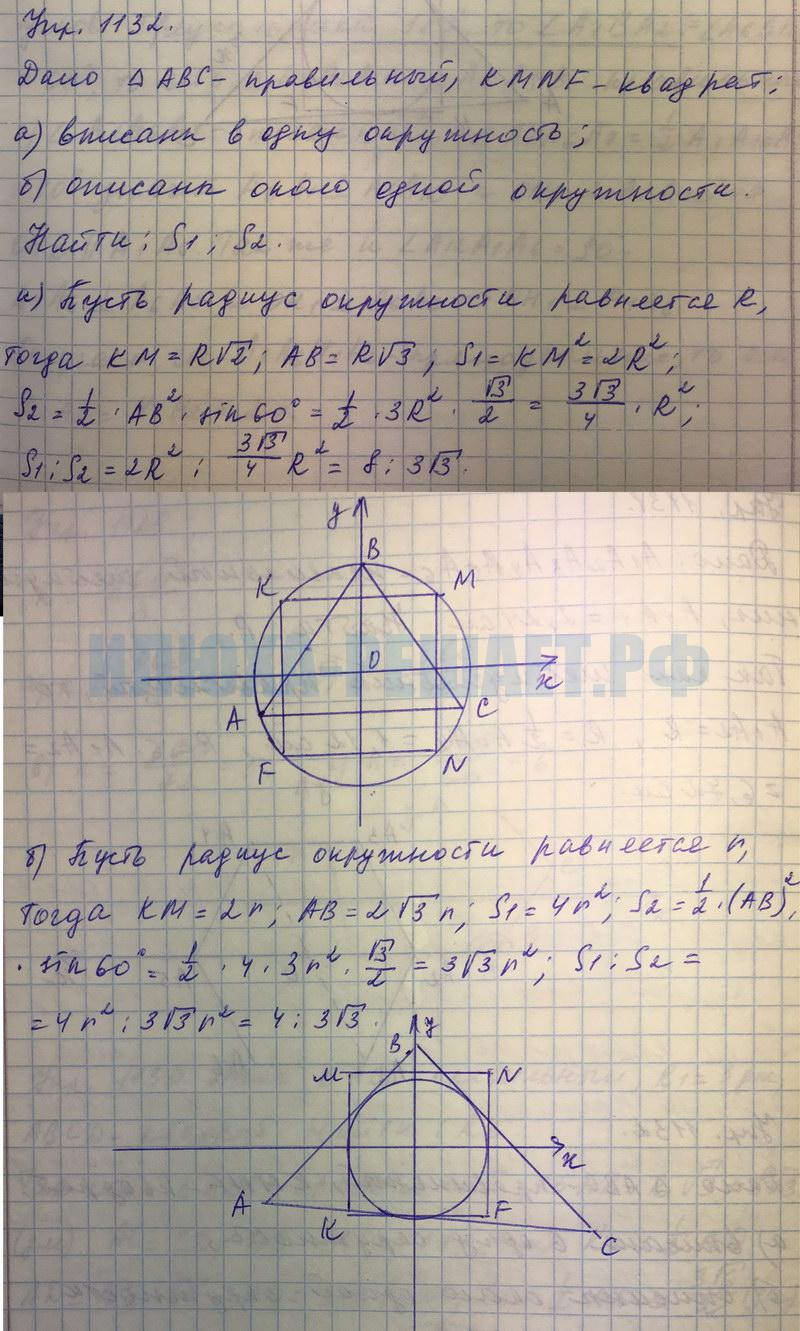 Упр. 1132.
Дано △ABC - правильный, KMNF - квадрат;
а) вписаны в одну окружность;
б) описаны около одной окружности.
Найти: S1; S2.
а) Пусть радиус окружности равняется R,
тогда KM = R√2; AB = R√3; S1 = KM² = 2R²;
S2 = 1/2 · AB² · sin 60° = 1/2 · 3R² · √3/2 = 3√3/4 · R²;
S1 : S2 = 2R² : 3√3/4 R² = 8 : 3√3.
y
B
K M
ИЛЮХА-РЕШАЕТ.РФ
O
x
A C
F N
б) Пусть радиус окружности равняется r,
тогда KM = 2r; AB = 2√3 r; S1 = 4r²; S2 = 1/2 · (AB)² ·
· sin 60° = 1/2 · 4 · 3r² · √3/2 = 3√3 r²; S1 : S2 =
= 4r² : 3√3 r² = 4 : 3√3.
B y
M N
x
A
K F
C